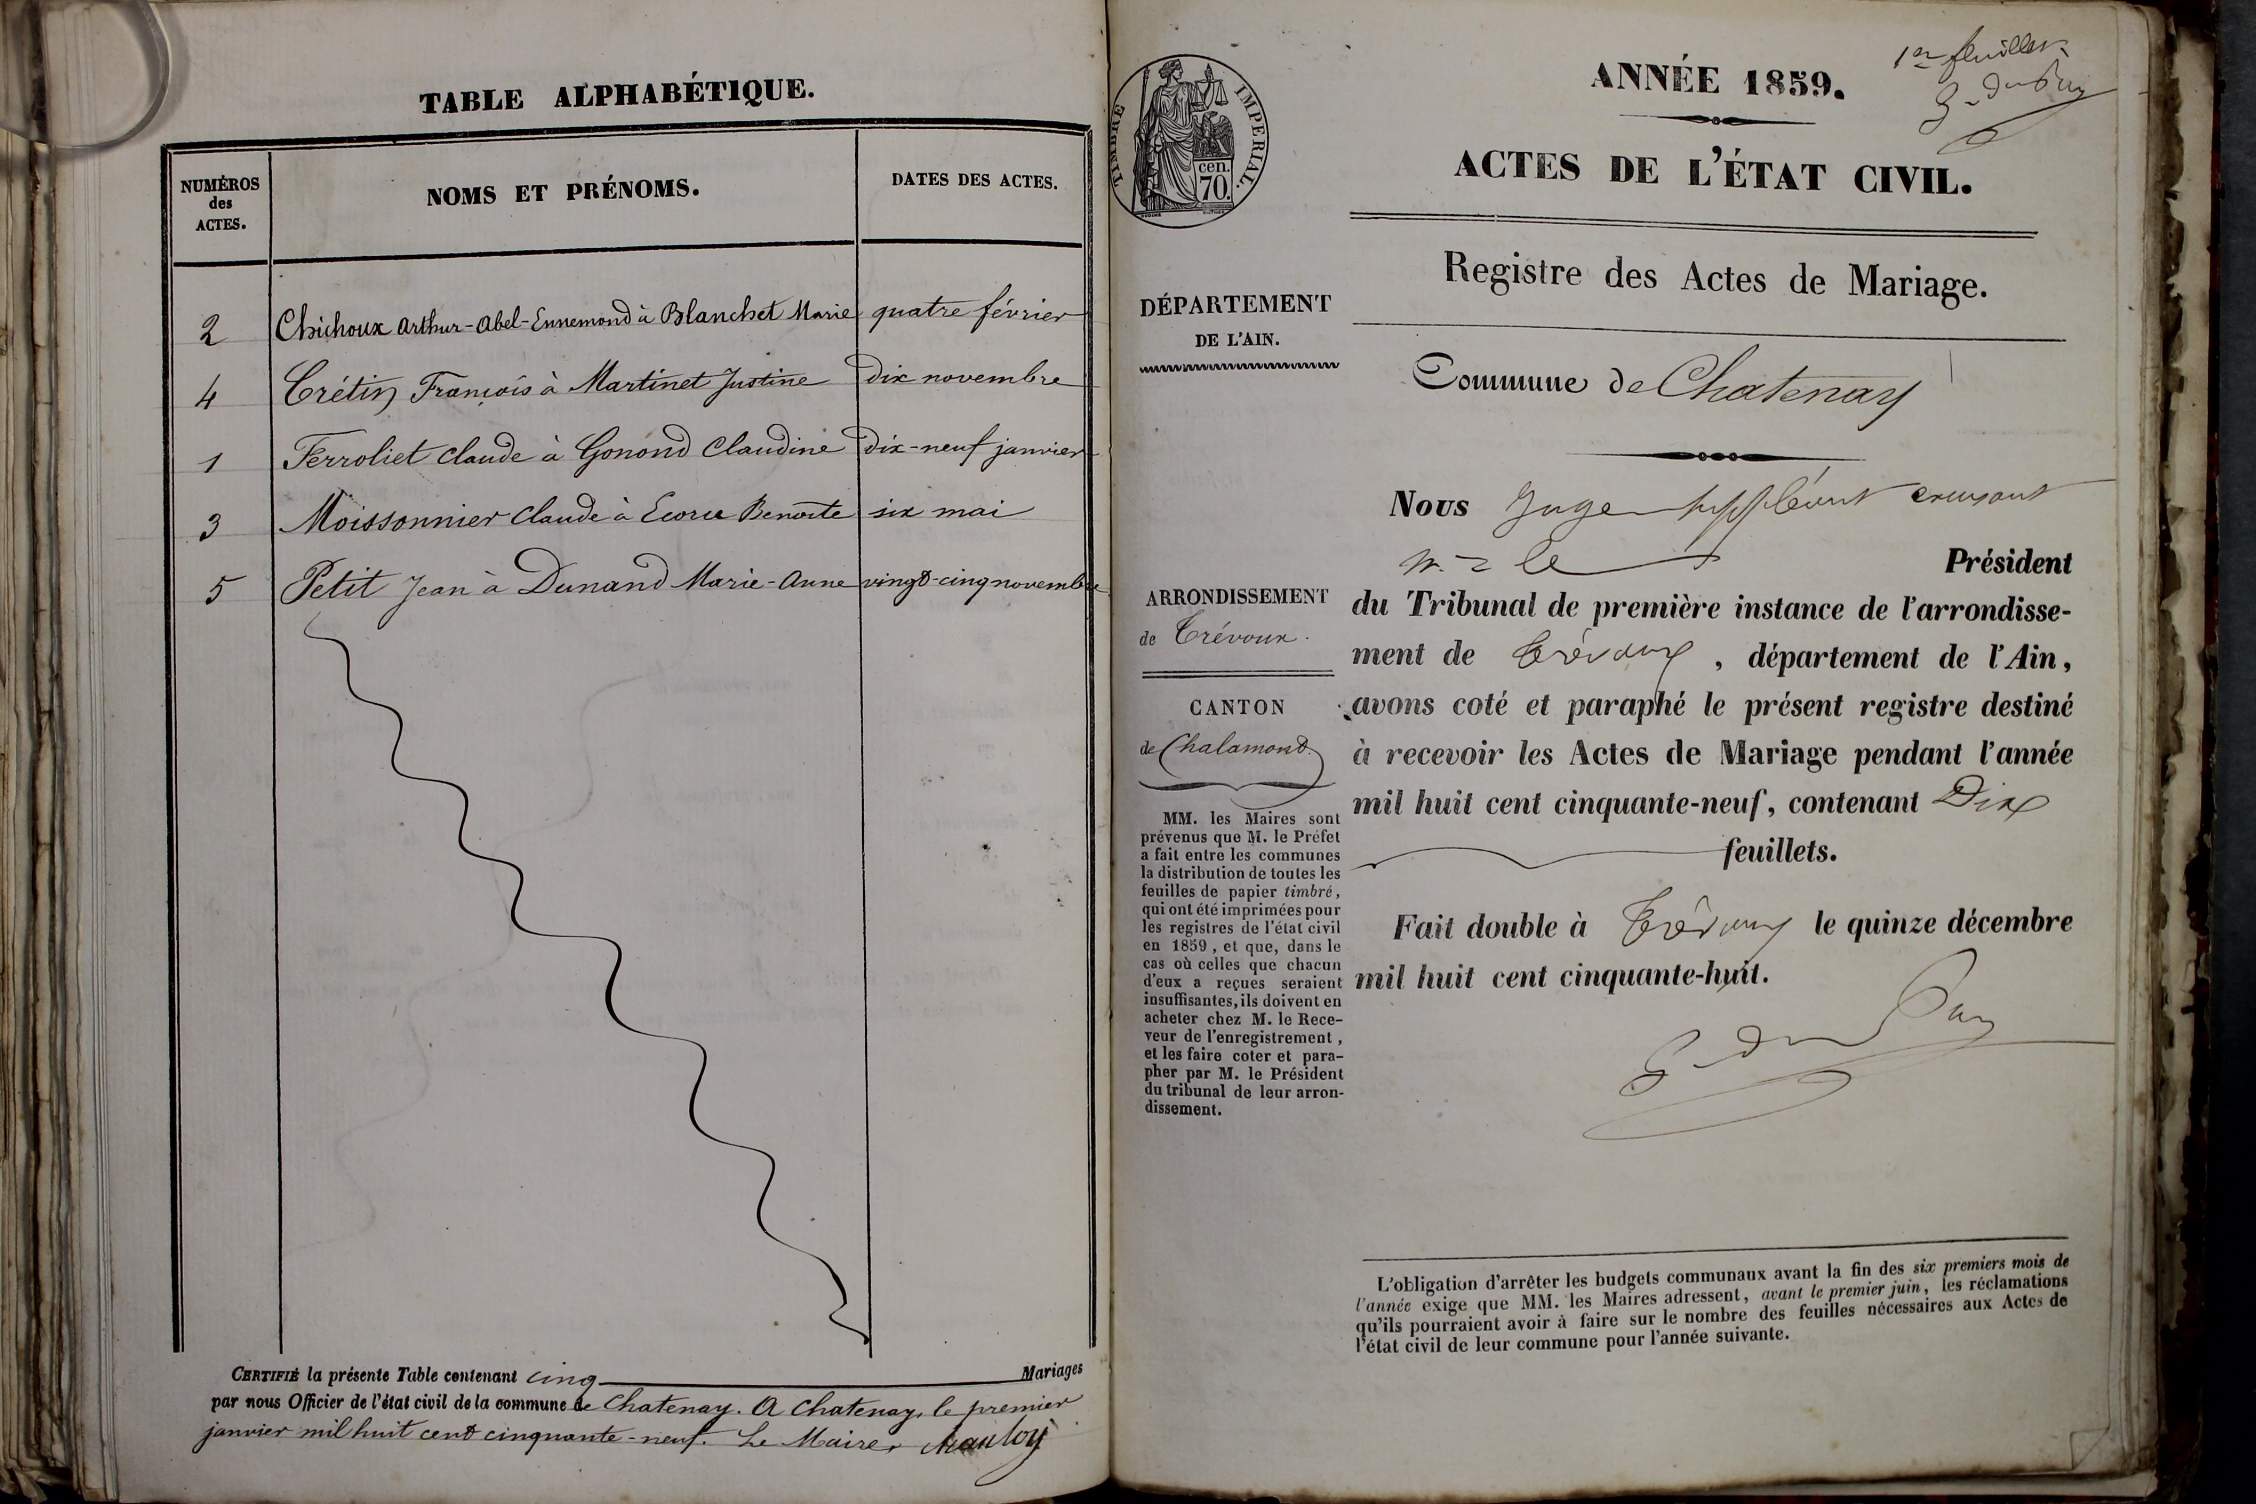 TABLE ALPHABÉTIQUE.
NUMÉROS des ACTES.
NOMS ET PRÉNOMS.
DATES DES ACTES.
2 Chichoux Arthur-Abel-Ennemond à Blanchet Marie quatre février
4 Crétin François à Martinet Justine dix novembre
1 Ferroliet Claude à Gonond Claudine dix-neuf janvier
3 Moissonnier Claude à Benoîte six mai
5 Petit Jean à Dunand Marie-Anne vingt-cinq novembre
CERTIFIÉ la présente Table contenant cinq Mariages
par nous Officier de l'état civil de la commune de Chatenay. A Chatenay, le premier
janvier mil huit cent cinquante-neuf. Le Maire,
TIMBRE IMPERIAL.
cen.
70.
DÉPARTEMENT
DE L'AIN.
ARRONDISSEMENT
de Trévoux.
CANTON
de Chalamont
MM. les Maires sont
prévenus que M. le Préfet
a fait entre les communes
la distribution de toutes les
feuilles de papier timbré,
qui ont été imprimées pour
les registres de l'état civil
en 1859, et que, dans le
cas où celles que chacun
d'eux a reçues seraient
insuffisantes, ils doivent en
acheter chez M. le Rece-
veur de l'enregistrement,
et les faire coter et para-
pher par M. le Président
du tribunal de leur arron-
dissement.
1er feuillet
ANNÉE 1859.
ACTES DE L'ÉTAT CIVIL.
Registre des Actes de Mariage.
Commune de Chatenay
Nous Juge suppléant
le Président
du Tribunal de première instance de l'arrondisse-
ment de Trévoux, département de l'Ain,
avons coté et paraphé le présent registre destiné
à recevoir les Actes de Mariage pendant l'année
mil huit cent cinquante-neuf, contenant Dix
feuillets.
Fait double à Trévoux le quinze décembre
mil huit cent cinquante-huit.
L'obligation d'arrêter les budgets communaux avant la fin des six premiers mois de
l'année exige que MM. les Maires adressent, avant le premier juin, les réclamations
qu'ils pourraient avoir à faire sur le nombre des feuilles nécessaires aux Actes de
l'état civil de leur commune pour l'année suivante.